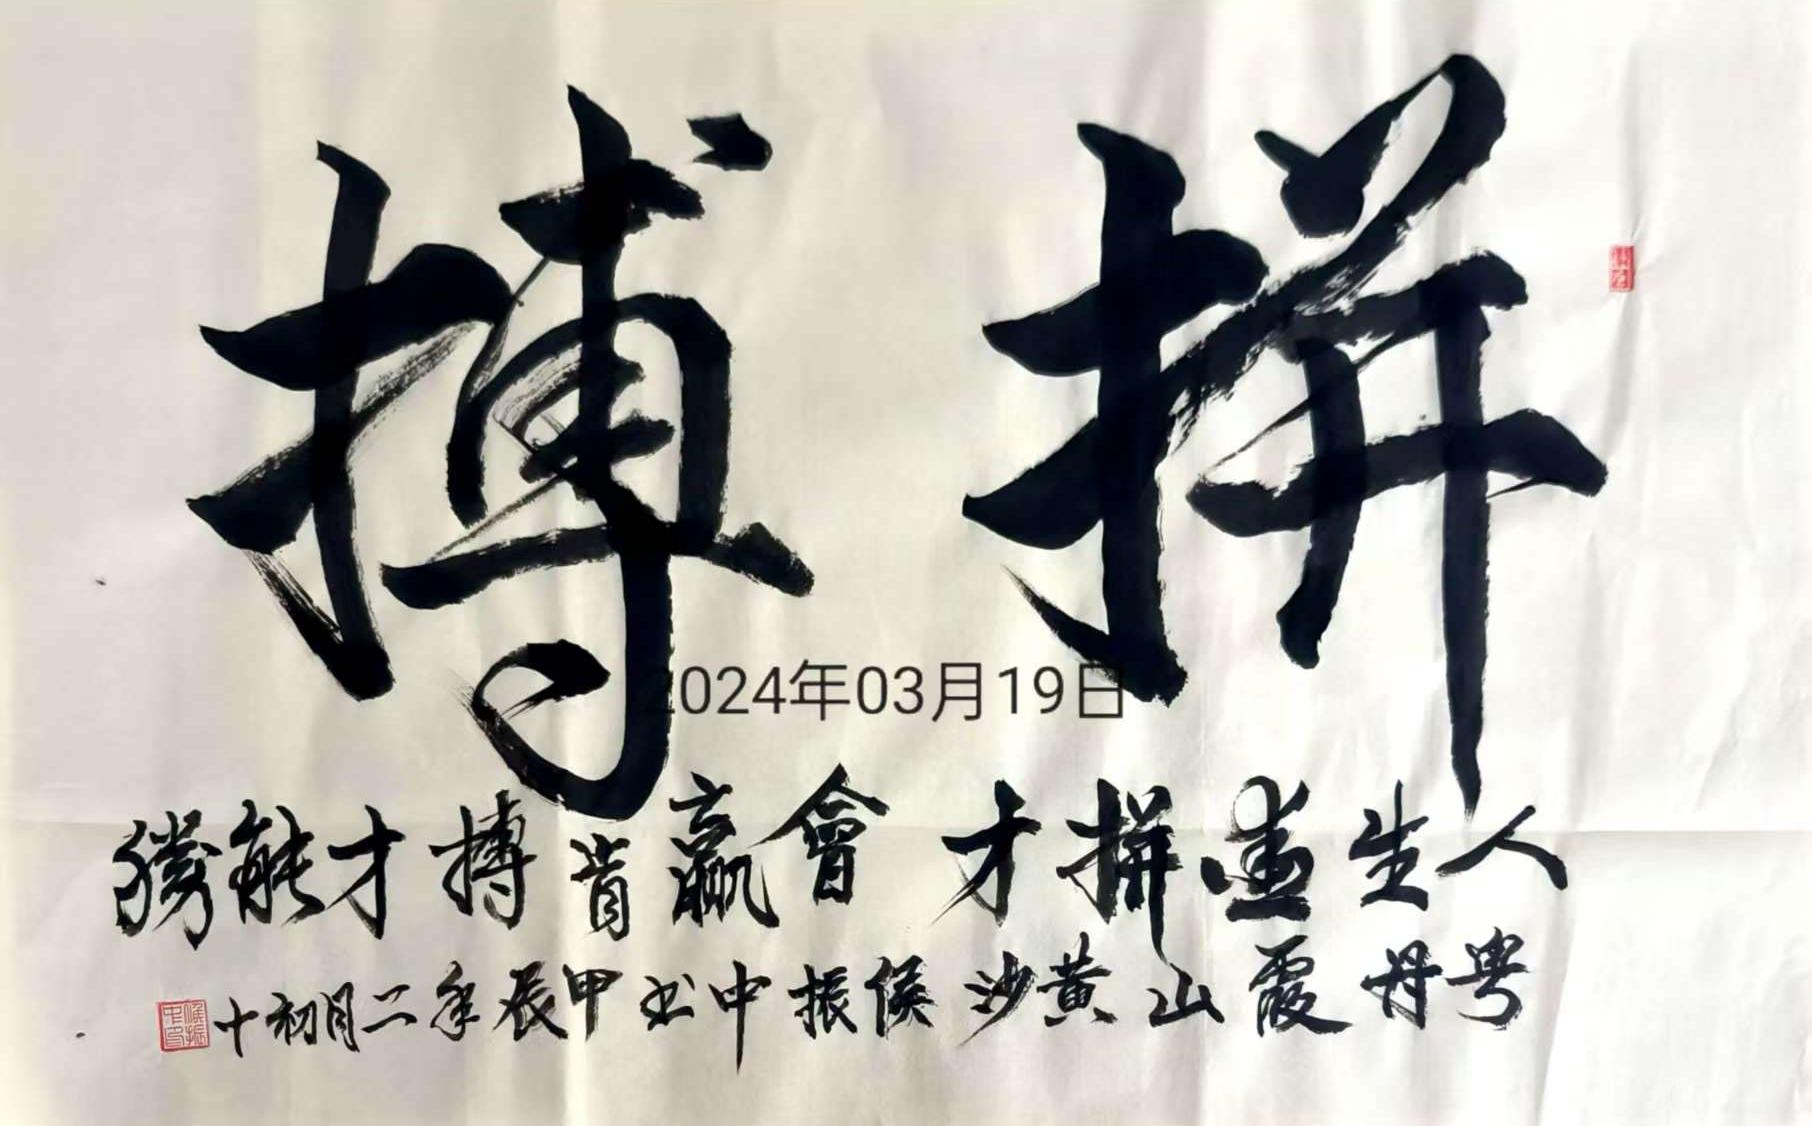 拼搏
2024年03月19日
人生拼才會贏肯搏才能勝
粤丹霞山黄沙侯振中书甲辰年二月初十
侯振中印